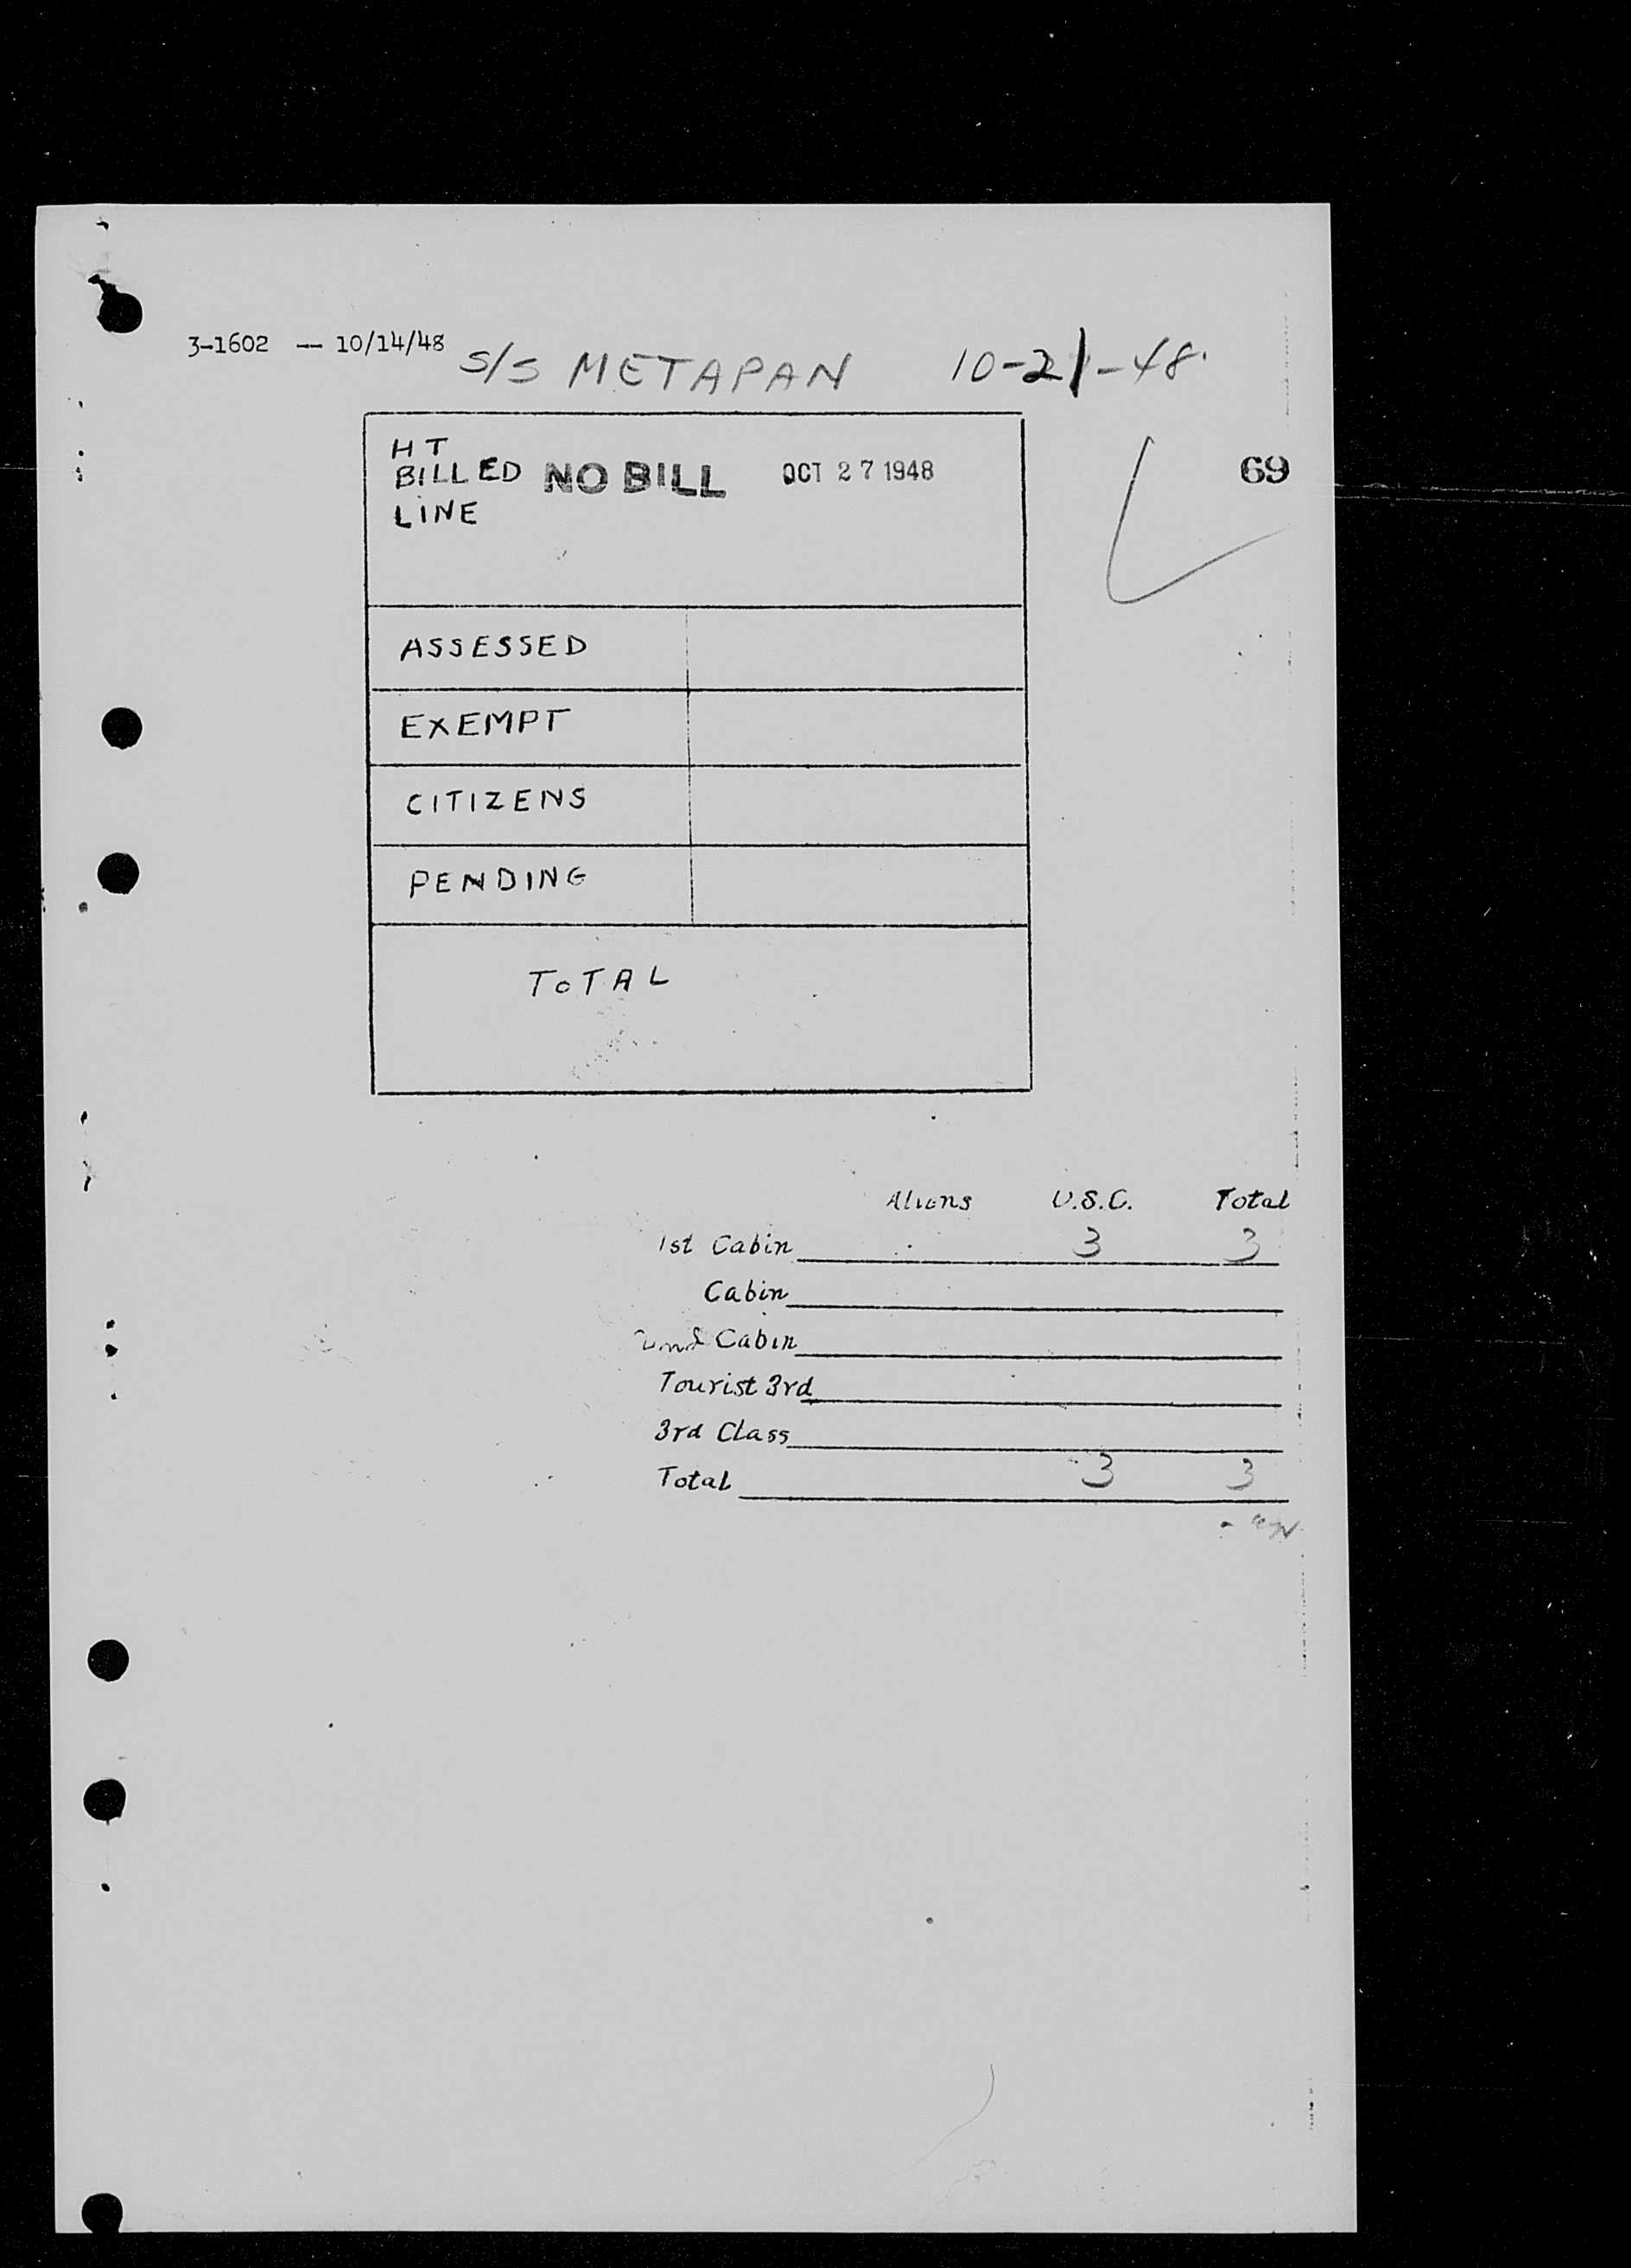 3-1602 -- 10/14/48 S/S METAPAN 10-21-48.
HT
BILLED NO BILL OCT 27 1948
LINE
69
ASSESSED
EXEMPT
CITIZENS
PENDING
TOTAL
Aliens U.S.C. Total
1st Cabin 3 3
Cabin
2nd Cabin
Tourist 3rd
3rd Class
Total 3 3